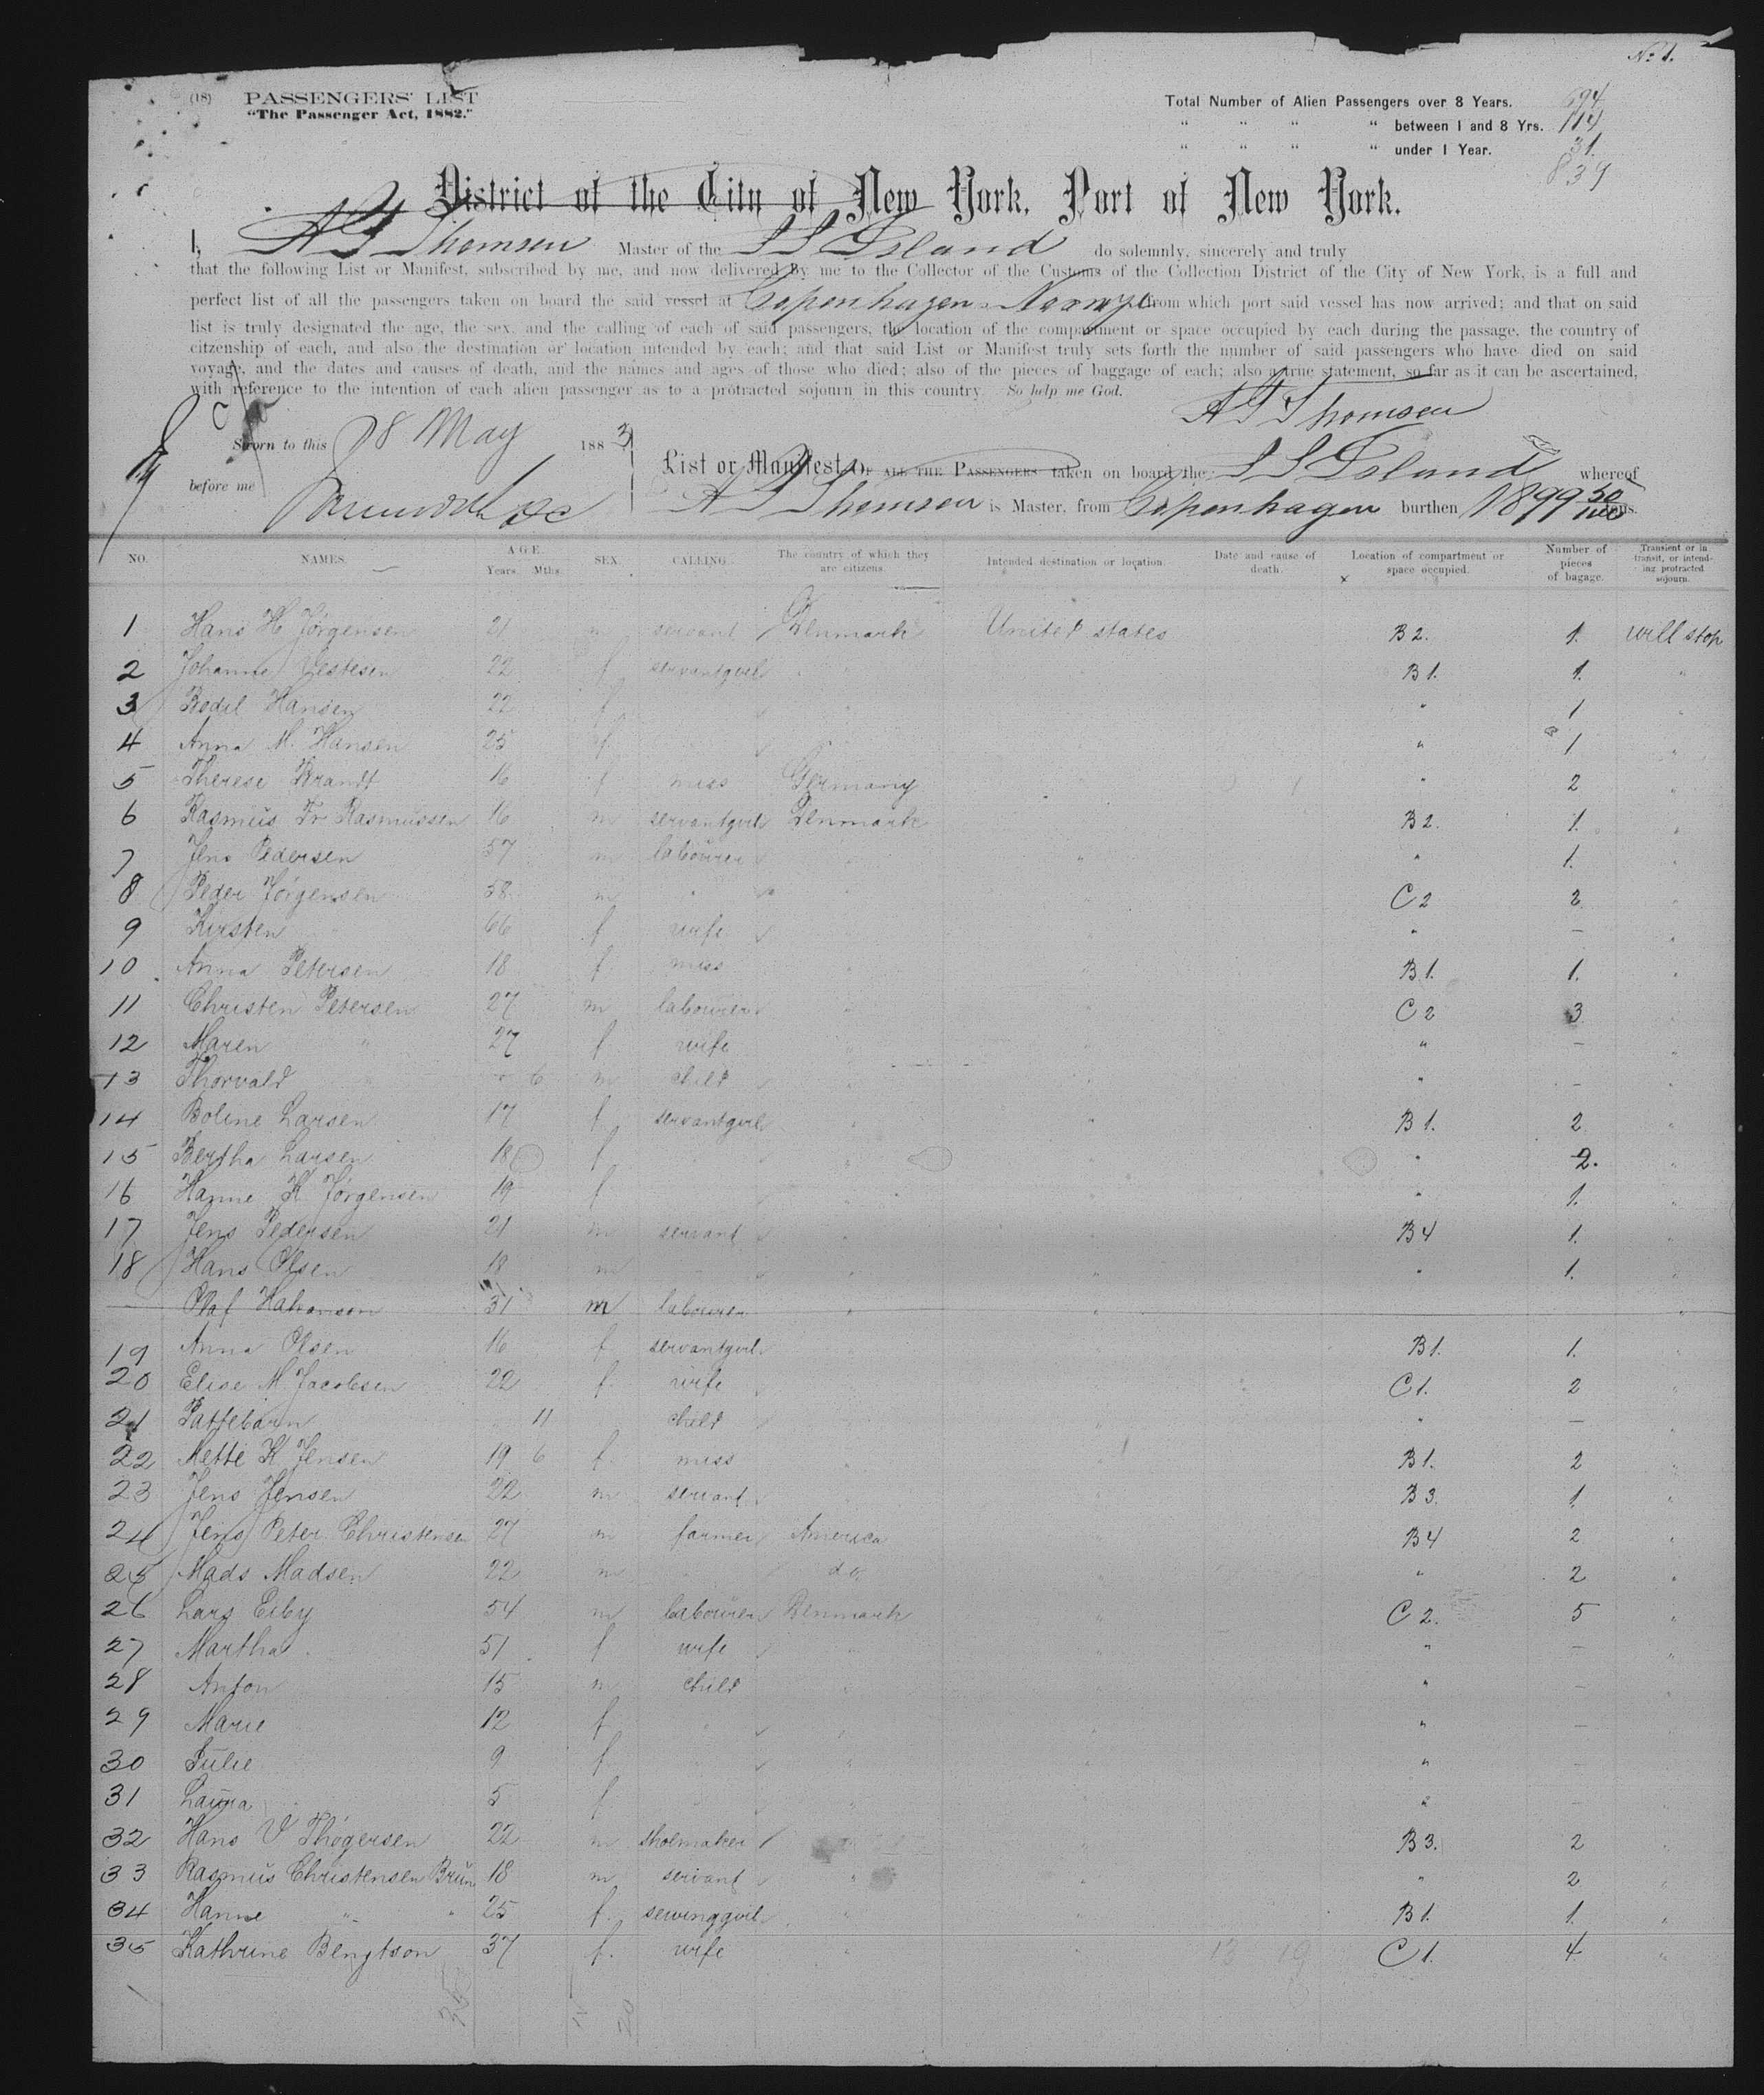 No 1.
(18) PASSENGERS' LIST
"The Passenger Act, 1882."
Total Number of Alien Passengers over 8 Years. 694
" " " " between 1 and 8 Yrs. 114
" " " " under 1 Year. 31.
839
District of the City of New York, Port of New York.
I, A G Thomsen Master of the S S Island do solemnly, sincerely and truly
that the following List or Manifest, subscribed by me, and now delivered by me to the Collector of the Customs of the Collection District of the City of New York, is a full and
perfect list of all the passengers taken on board the said vessel at Copenhagen from which port said vessel has now arrived; and that on said
list is truly designated the age, the sex, and the calling of each of said passengers, the location of the compartment or space occupied by each during the passage, the country of
citzenship of each, and also the destination or location intended by each; and that said List or Manifest truly sets forth the number of said passengers who have died on said
voyage, and the dates and causes of death, and the names and ages of those who died; also of the pieces of baggage of each; also a true statement, so far as it can be ascertained,
with reference to the intention of each alien passenger as to a protracted sojourn in this country. So help me God.
A G Thomsen
Sworn to this 28 May 1883
before me
List or Manifest OF ALL THE PASSENGERS taken on board the S S Island whereof
A G Thomsen is Master, from Copenhagen burthen 1899 50/100 tons.
NO. NAMES. AGE. Years. Mths. SEX. CALLING. The country of which they are citizens. Intended destination or location. Date and cause of death. Location of compartment or space occupied. Number of pieces of bagage. Transient or in transit, or intending protracted sojourn.
1 Hans H Jørgensen 21 m servant Denmark United states B 2. 1. will stop
2 Johanne 22 f servantgirl " " B 1. 1. "
3 Bodil Hansen 22 f " " " " 1 "
4 Anna M. Hansen 25 f " " " " 1 "
5 Therese Brandt 16 f miss Germany " " 2 "
6 Rasmus Fr Rasmussen 16 m servantgirl Denmark " B 2. 1. "
7 Jens Pedersen 57 m labourer " " " 1. "
8 Peder Jörgensen 58 m " " " C 2 2 "
9 Kirsten " 66 f wife " " " — "
10 Anna Petersen 18 f miss " " B 1. 1. "
11 Christen Petersen 27 m labourer " " C 2 3 "
12 Maren " 27 f wife " " " — "
13 Thorvald " 6 m child " " " — "
14 Boline Larsen 17 f servantgirl " " B 1. 2 "
15 Bertha Larsen 18 f " " " " 2. "
16 Hanne K Jørgensen 19 f " " " " 1. "
17 Jens Pedersen 21 m servant " " B 4 1. "
18 Hans Olsen 18 m " " " " 1. "
Olaf 31 m labourer " " "
19 Anna Olsen 16 f servantgirl " " B 1. 1. "
20 Elise M. Jacobsen 22 f. wife " " C 1. 2 "
21 Pattebarn 11 child " " " — "
22 Mette K Jensen 19 6 f. miss " " B 1. 2 "
23 Jens Jensen 22 m servant " " B 3. 1. "
24 Jens Peter Christensen 27 m farmer America " B 4 2 "
25 Mads Madsen 22 m " do. " " 2 "
26 Lars Eiby 54 m labourer Denmark " C 2. 5 "
27 Martha 51 f wife " " " — "
28 Anton 15 m child " " " — "
29 Marie 12 f " " " " — "
30 Julie 9 f " " " " — "
31 Laura 5 f " " " " — "
32 Hans V Thøgersen 22 m shoemaker " " B 3. 2 "
33 Rasmus Christensen Brun 18 m servant " " " 2 "
34 Hanne " " 25 f. sewinggirl " " B 1. 1. "
35 Kathrine Bengtson 37 f. wife " " C 1. 4 "
13 19
35 20